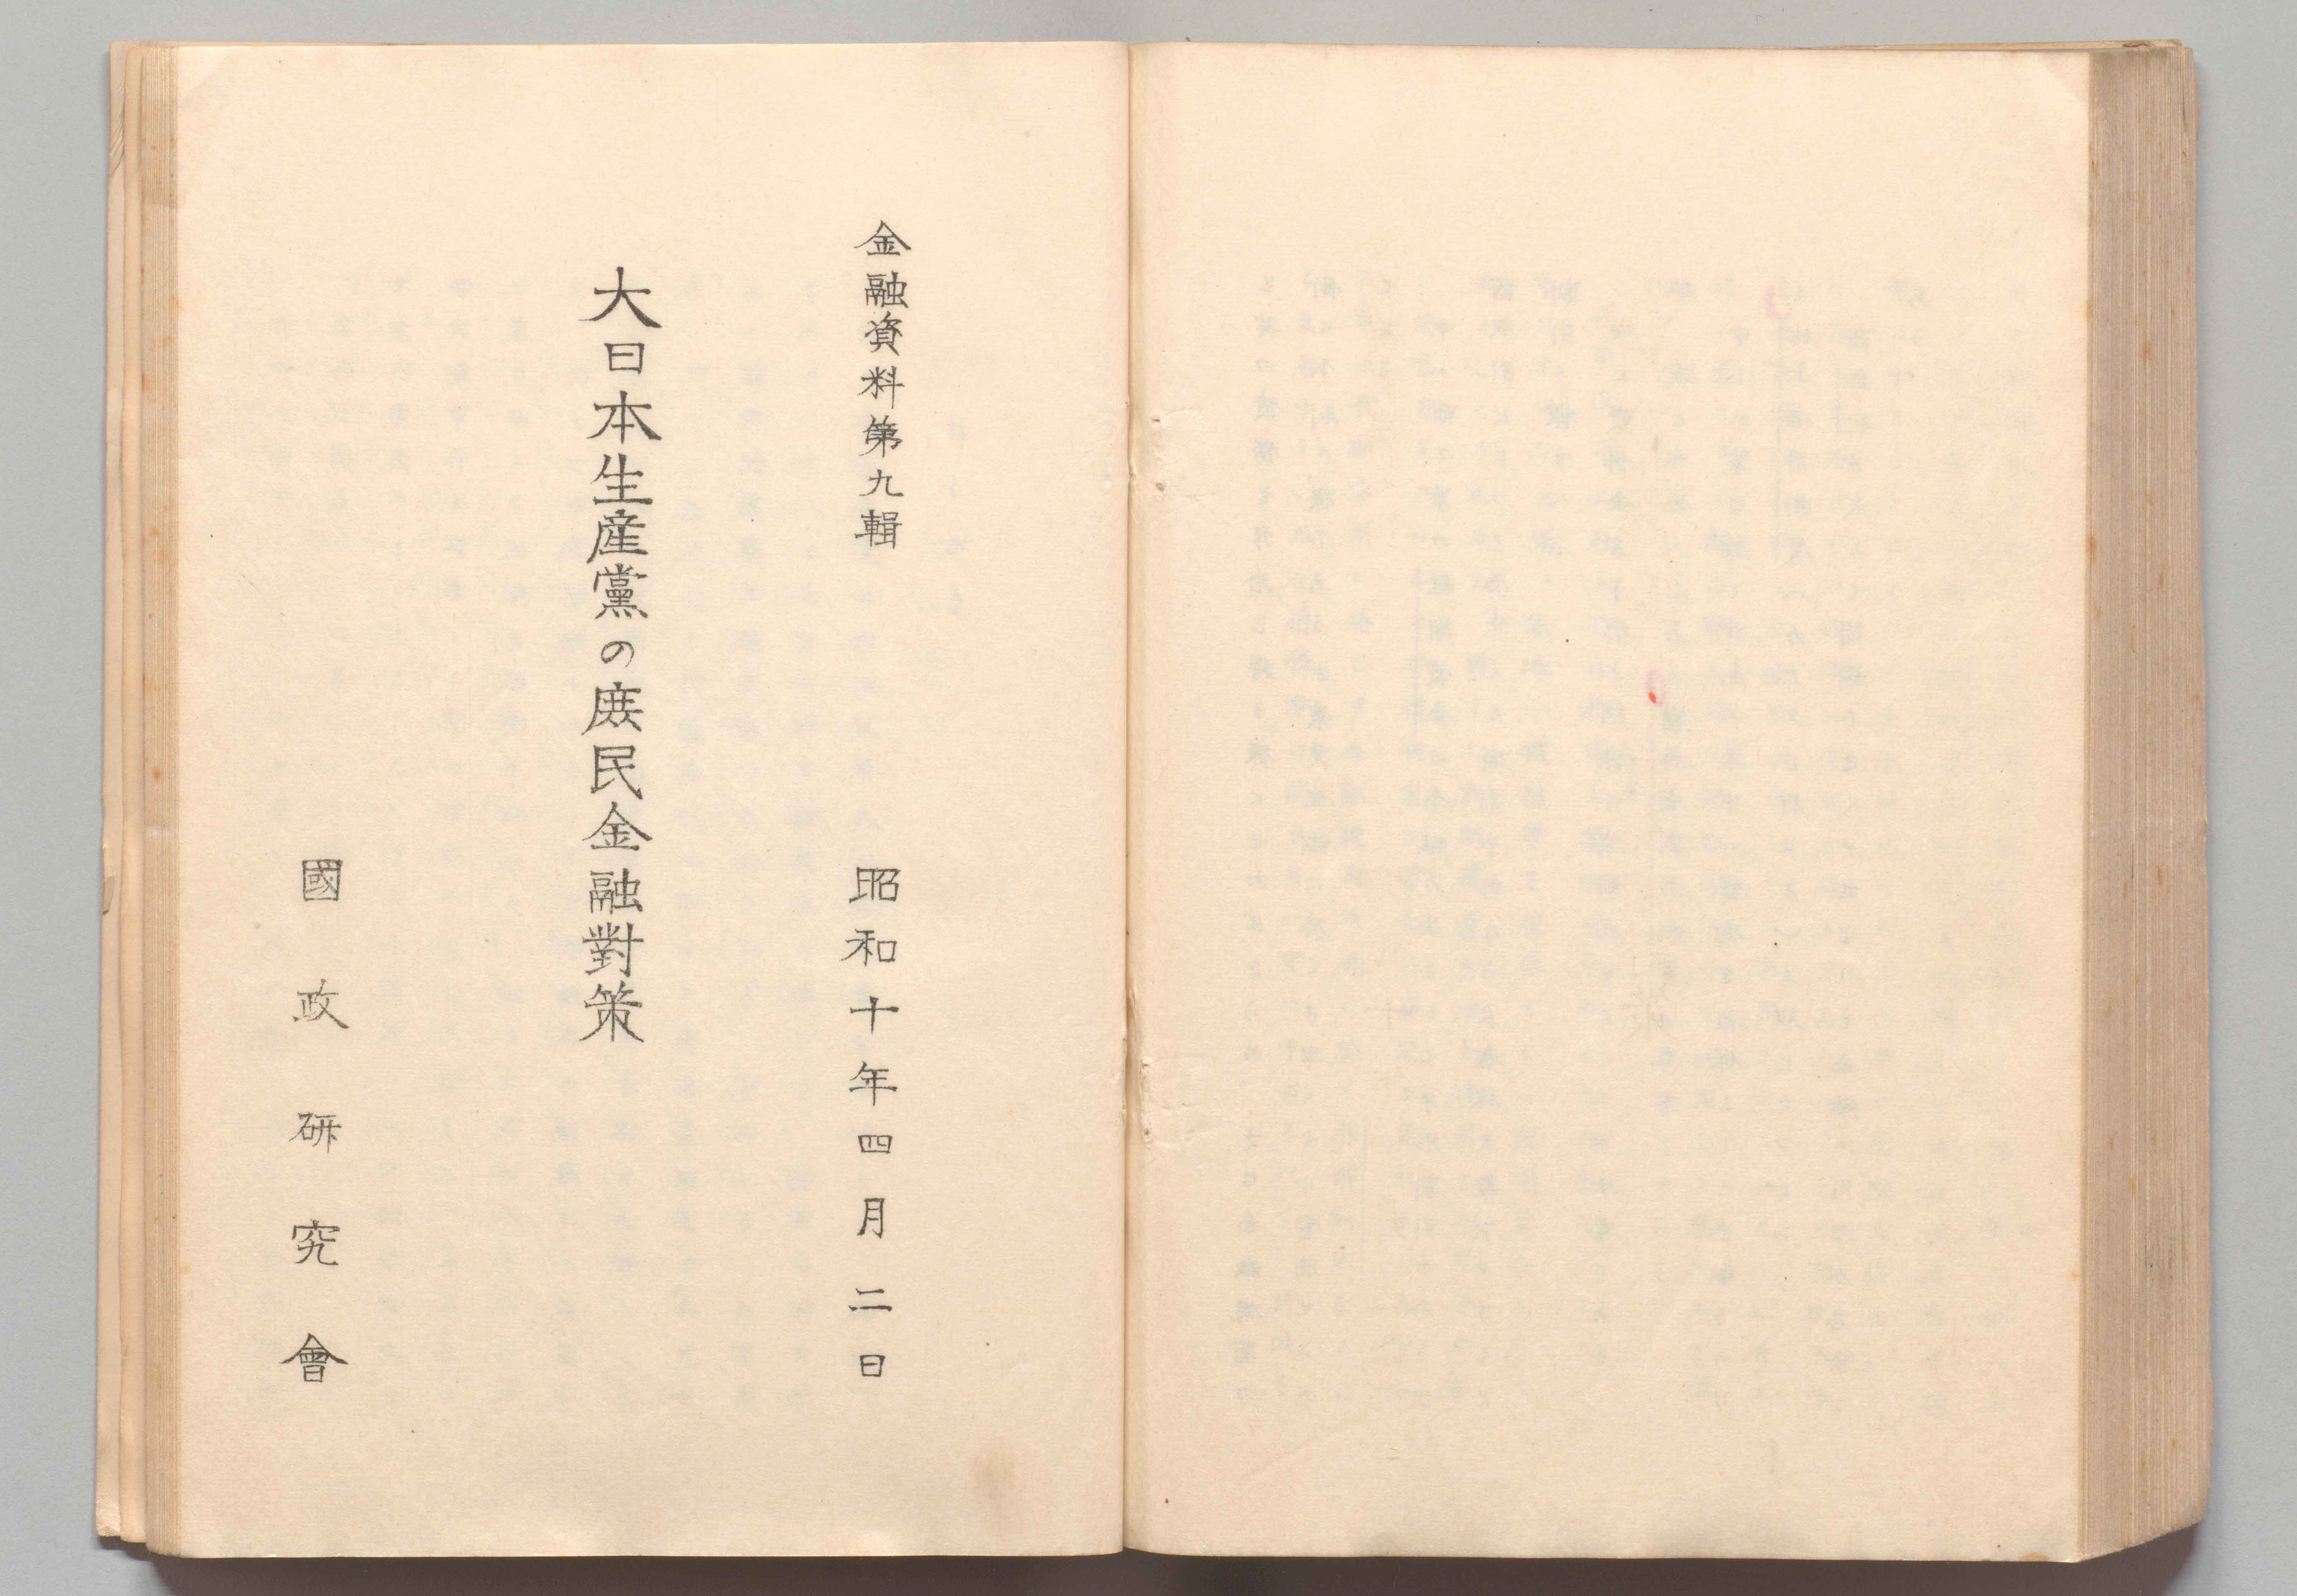 金融資料第九輯
昭和十年四月二日
大日本生産黨の庶民金融對策
國政研究會